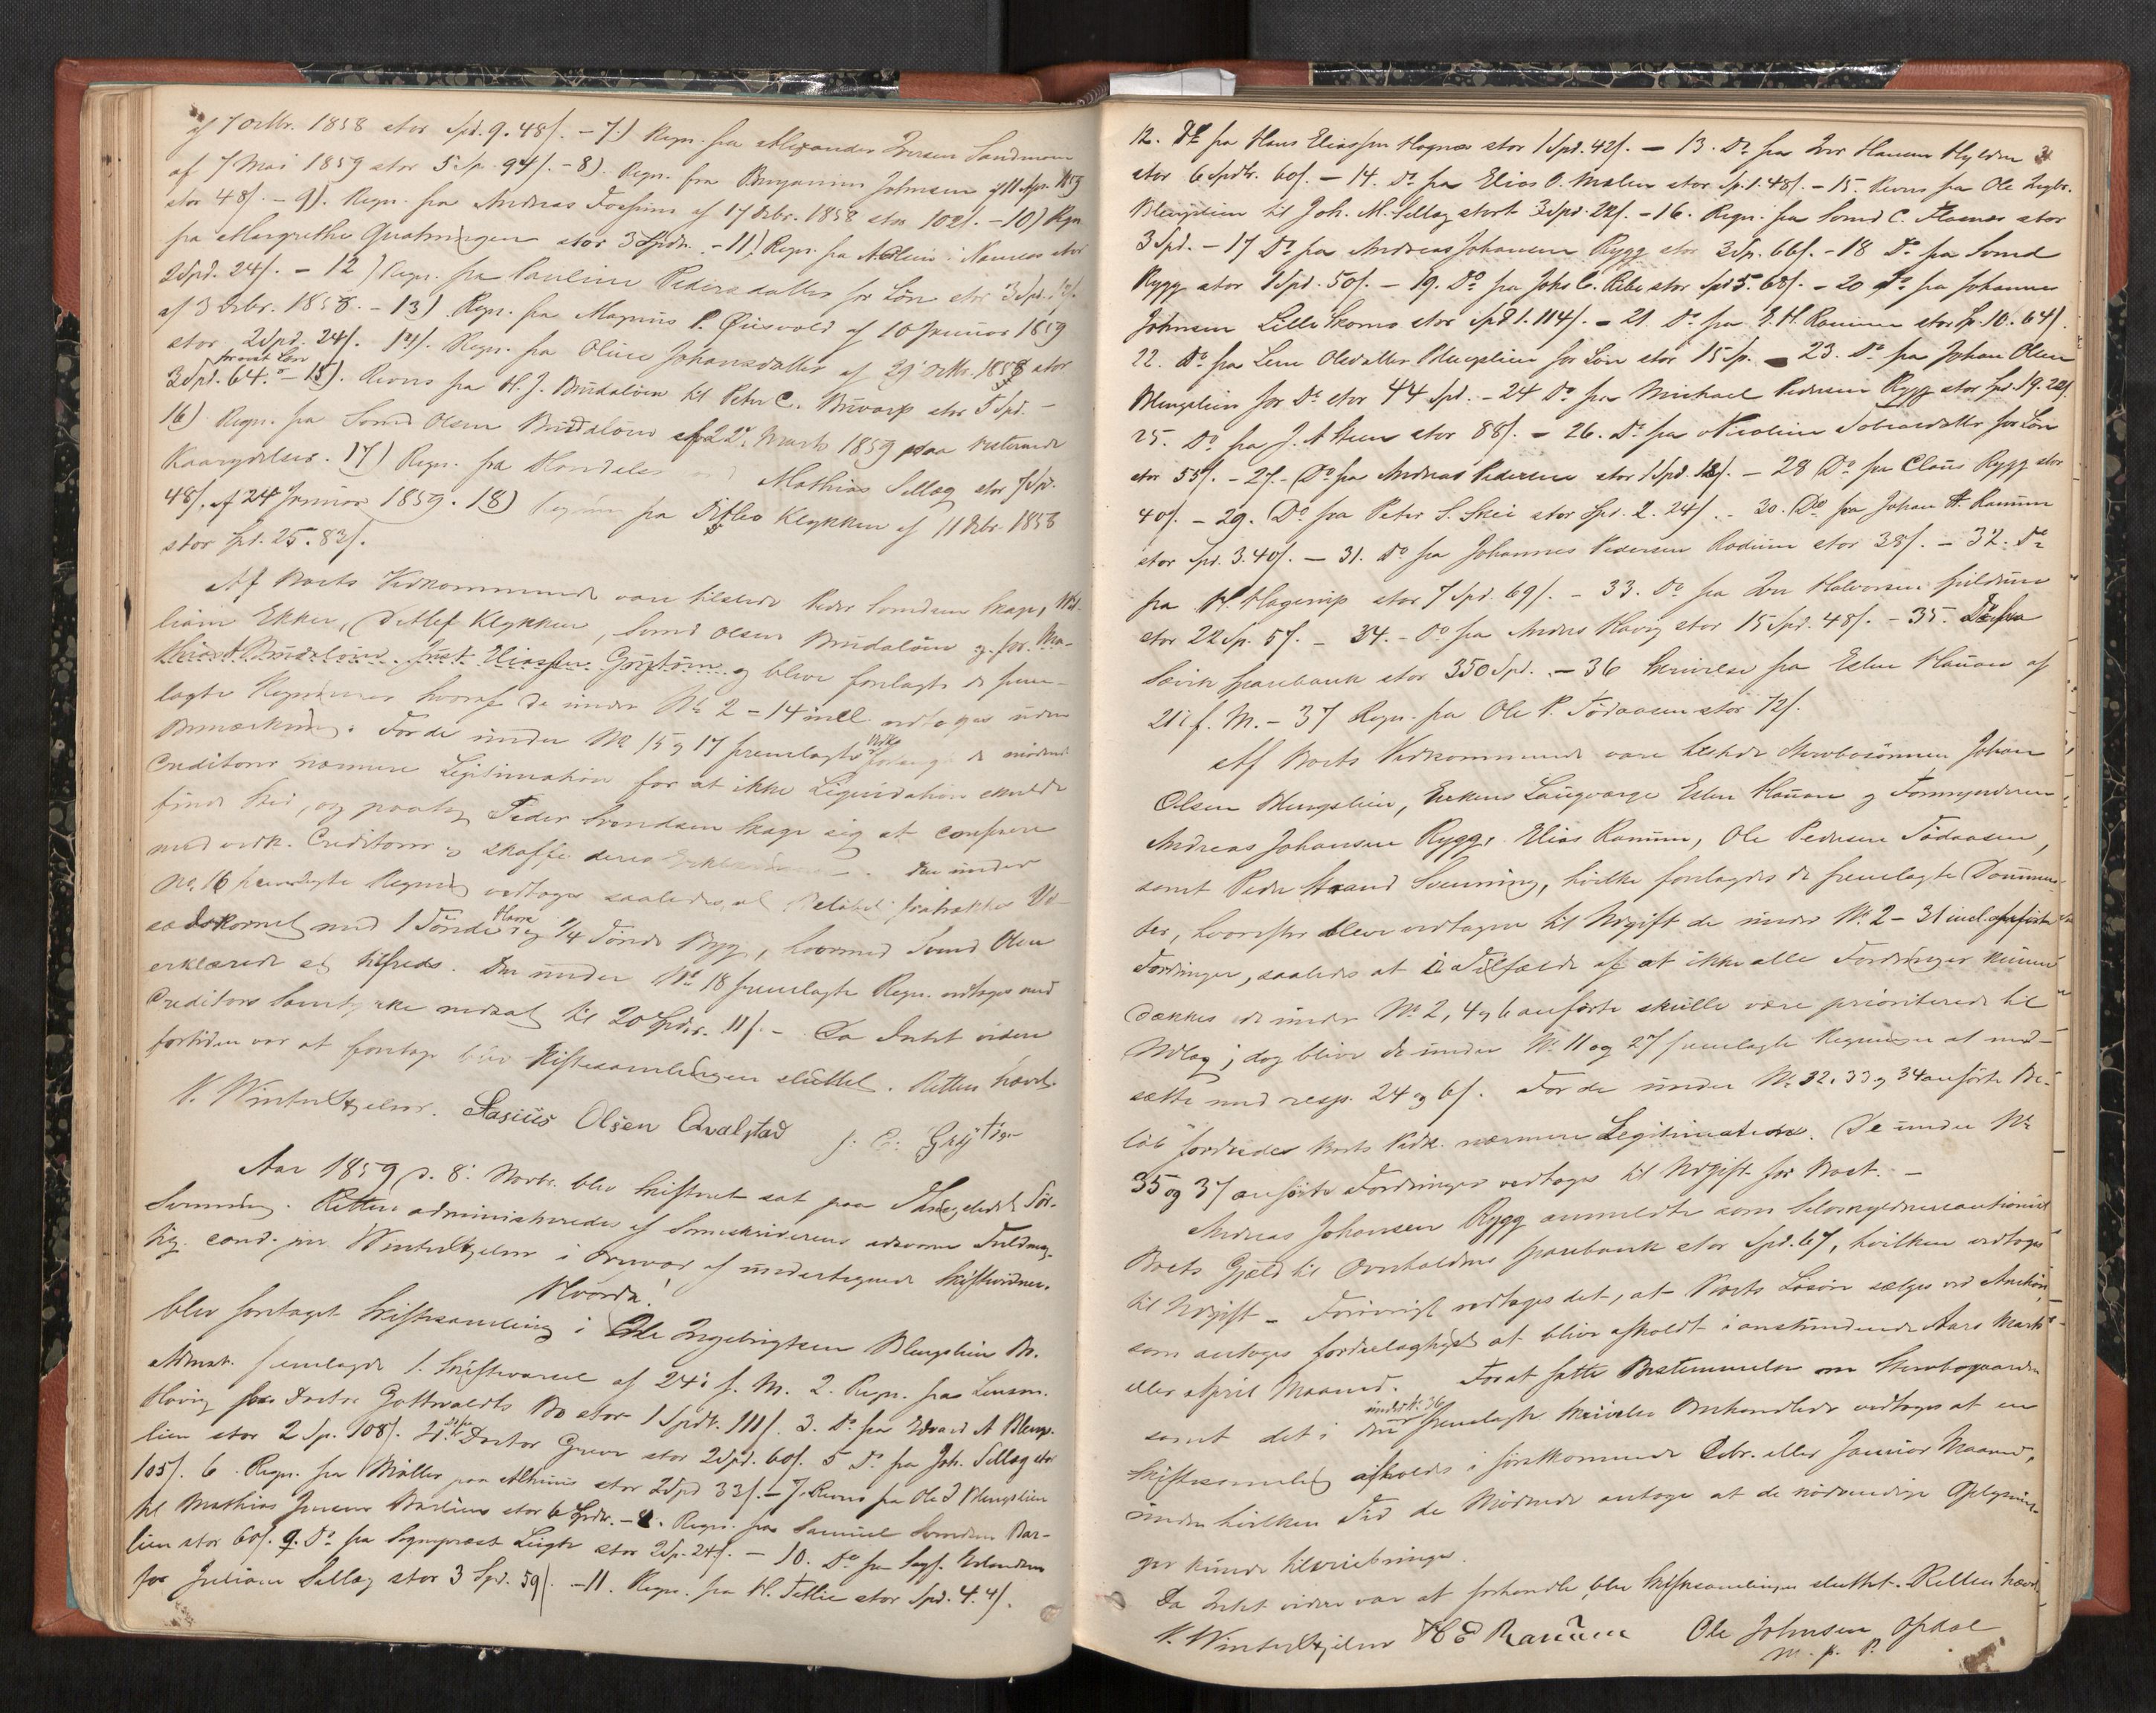 af 7 Octbr. 1858 stor Spd. 9. 48/. - 7.) Regn. fra Alexander Iversen Sandmoen
af 7 Mai 1859 stor 5 Sp. 94/. - 8). Regn. fra Benjamin Johnsen af 11 Apr. 1859
stor 48/. - 9). Regn. fra Andreas Fossum af 17 Decbr. 1858 stor 102/. - 10) Regn.
fra Margrethe Qvatningen stor 3 Spdr. - 11) Regn. fra i Namsos stor
2 Spd. 24/. - 12) Regn. fra Pauline Pedersdatter for Løn stor 3 Spd.
af 3 Decbr. 1858. - 13) Regn. fra Magnus P. Øiesvold af 10 Januar 1859
stor 2 Spd. 24/. 14/. Regn. fra Oline Johansdatter af 29 Octbr. 1858 stor
3 Spd. 64. - 15). Revers fra H. J. Brudaløen til Peter C. Buvarp stor 5 Spd. -
16) Regn. fra Svend Olsen Brudaløen af 22. Marts 1859 paa resterende
Kaarydelser. 17) Regn. fra Handels Mathias Sellæg stor 7 Spd.
48/. af 24 Januar 1859. 18) Regning fra Ditlev Klykken af 11 Decbr. 1858
stor Spd. 25. 83/.
Af Boets Vedkommende vare tilstede Peder Svendsen Skage, Wil-
liam Ekker, Detlef Klykken, Svend Olsen Brudaløen og for Ma-
thias A. Brudaløen Just Eliassen Grøttum og bleve forelagte de frem-
lagte Regninger hvoraf de under No 2 - 14 incl. vedtoges uden
Bemærkning. For de under No 15 og 17 fremlagte forlangte de mødende
Creditorer nærmere Legitimation for at ikke Liquidation skulde
finde Sted, og paatog Peder Svendsen Skage sig at conferere
med vedk. Creditorer og skaffe deres Erklæringer. Den under
No. 16 fremlagte Regning vedtoges saaledes, at Beløbet fratrækkes
sædekornet med 1 Tønde Havre og 1/4 Tønde Byg, hvormed Svend Olsen
erklærede sig tilfreds. Den under No 18 fremlagte Regn. vedtoges med
Creditors Samtykke nedsat til 20 Spdr. 11/. - Da Intet videre
fortiden var at foretage blev Skiftesamlingen sluttet. Retten hævet.
V. Winterhjelm. Pasius Olsen Qvalstad J. E. Grøttum
Aar 1859 d. 8. Novbr. blev Skifteret sat paa Thingstedet Sør-
Svenning. Retten administreredes af Sorenskriverens edsvorne Fuldmæg-
tig cand. jur. Winterhjelm i Overvær af undertegnede Skiftevidner.
Hvorda!
blev foretaget Skiftesamling i Ole Ingebrigtsen Blengslien Bo.
Administ. fremlagde 1. Skiftevarsel af 24' f. M. 2. Regn. fra Lensm.
Havig fra Doctor Gottwaldts Bo stor 1 Spdlr. 111/. 3. Do fra Edvard A Blengs-
lien stor 2 Sp. 108/. 4. Doctor Greve stor 2 Spd. 60/. 5 Do fra Joh. Sellæg stor
105/. 6. Regn. fra Møller paa stor 2 Spd 33/. - 7. Revers fra Ole I Blengslien
til Mathias Jensen Barlien stor 6 Spdr. - 8. Regn. fra Samuel Svendsen Bar-
lien stor 60/. 9. Do fra Sognepræst Lugte stor 2 Sp. 24/. - 10. Do fra Sagf. Erlandsen
for Juliane Sellæg stor 3 Spd. 59/. - 11. Regn. fra H. Tetlie stor Spd. 4. 4/.
12. Do fra Hans Eliassen Hognæs stor 1 Spd. 42/. - 13. Do fra Iver Hansen Hylden
stor 6 Spdr. 60/. - 14. Do fra Elias O. Mælen stor Sp. 1. 48/. - 15. Revers fra Ole Ingbr.
Blengslien til Joh. M. Sellæg stort 3 Spd. 22/. - 16. Regn. fra Svend C. Flasnæs stor
3 Spd. - 17 Do fra Andreas Johansen Rygg stor 3 Sp. 66/. - 18 Do fra Svend
Rygg stor 1 Spd. 50/. - 19. Do fra Johs C. Ribe stor Spd 5. 68/. - 20 Do fra Johannes
Johnsen Lille Skomo stor Spd 1. 114/. - 21. Do fra E. H. Ranum stor Sp. 10. 64/.
22. Do fra Lene Olsdatter Blengslien for Løn stor 15 Sp. - 23. Do fra Johan Olsen
Blengslien for Do stor 44 Spd. - 24 Do fra Michael Pedersen Rygg stor Spd. 19. 22/.
25. Do fra J. A Steen stor 88/. - 26. Do fra Nicoline Tobiasdatter for Løn
stor 55/. - 27. Do fra Andreas Pedersen stor 1 Spd. 18/. - 28 Do fra Claus Rygg stor
40/. - 29. Do fra Peter S. Skei stor Spd. 2. 24/. - 30. Do fra Johan H. Ranum
stor Spd. 3. 40/. - 31. Do fra Johannes Pedersen Rodum stor 38/. - 32. Do
fra H. Hagerup stor 7 Spd. 69/. - 33. Do fra Iver Halvorsen Spildum
stor 22 Sp. 5/. - 34. - Do fra Anders Havig stor 15 Spd. 48/. - 35. Do fra
Sparebank stor 350 Spd. - 36 Skrivelse fra Esten Hauan af
21 i f. M. - 37 Regn. fra Ole P. Fødaasen stor 72/.
Af Boets Vedkommende vare tilstede Stervbosønnen Johan
Olsen Blengslien, Enkens Laugværge Esten Hauan og Formynderen
Andreas Johansen Rygg, Elias Ranum, Ole Pedersen Fødaasen,
samt Peder Strand Svenning, hvilke forelagdes de fremlagte Documen-
ter, hvorefter bleve vedtagne til Udgift de under No 2 - 31 incl. anførte
Fordringer, saaledes at i Tilfælde af at ikke alle Fordringer kunne
dækkes de under No 2, 4 og 6 anførte skulle være prioriterede til
Udlæg; dog blive de under No 11 og 27 fremlagte Regninger at ned-
sætte med resp. 24 og 6/. For de under No 32, 33 og 34 anførte Be-
løb fordredes Boets Vedk. nærmere Legitimation. De under No
35 og 37 anførte Fordringer vedtoges til Udgift for Boet. -
Andreas Johansen Rygg anmeldte som Selvskyldnercautionist
Boets Gjæld til Overhaldens Sparebank stor Spd. 67, hvilken vedtoges
til Udgift. - Forøvrigt vedtoges det, at Boets Løsøre sælges ved Auction,
som antoges fordeelagtigst at blive afholdt i anstundende Aars Marts
eller April Maaned. For at fatte Bestemmelse om Stervbogaarden
samt det i den under No 36 fremlagte Skrivelse Omhandlede vedtoges at en
Skiftesamling afholdes i førstkommende Decbr. eller Januar Maaned,
inden hvilken Tid de Mødende antoge at de nødvendige Oplysnin-
ger kunde tilveiebringes.
Da Intet videre var at forhandle, blev Skiftesamlingen sluttet. Retten hævet
V. Winterhjelm H E Ranum Ole Johnsen Opdal
m. p. P.